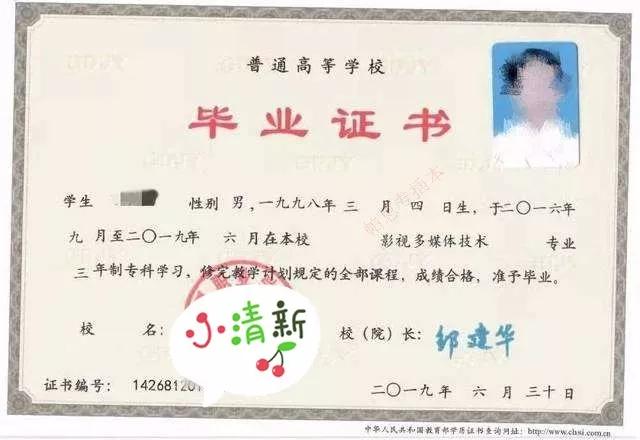 普通高等学校
毕业证书
学生 性别 男，一九九八年 三 月 四 日生，于二〇一六年
九 月至二〇一九年 六 月在本校 影视多媒体技术 专业
三 年制专科学习，修完教学计划规定的全部课程，成绩合格，准予毕业。
校 名： 校（院）长：邹建华
小清新
证书编号： 14268120
二〇一九年 六 月 三十日
中华人民共和国教育部学历证书查询网址：http://www.chsi.com.cn